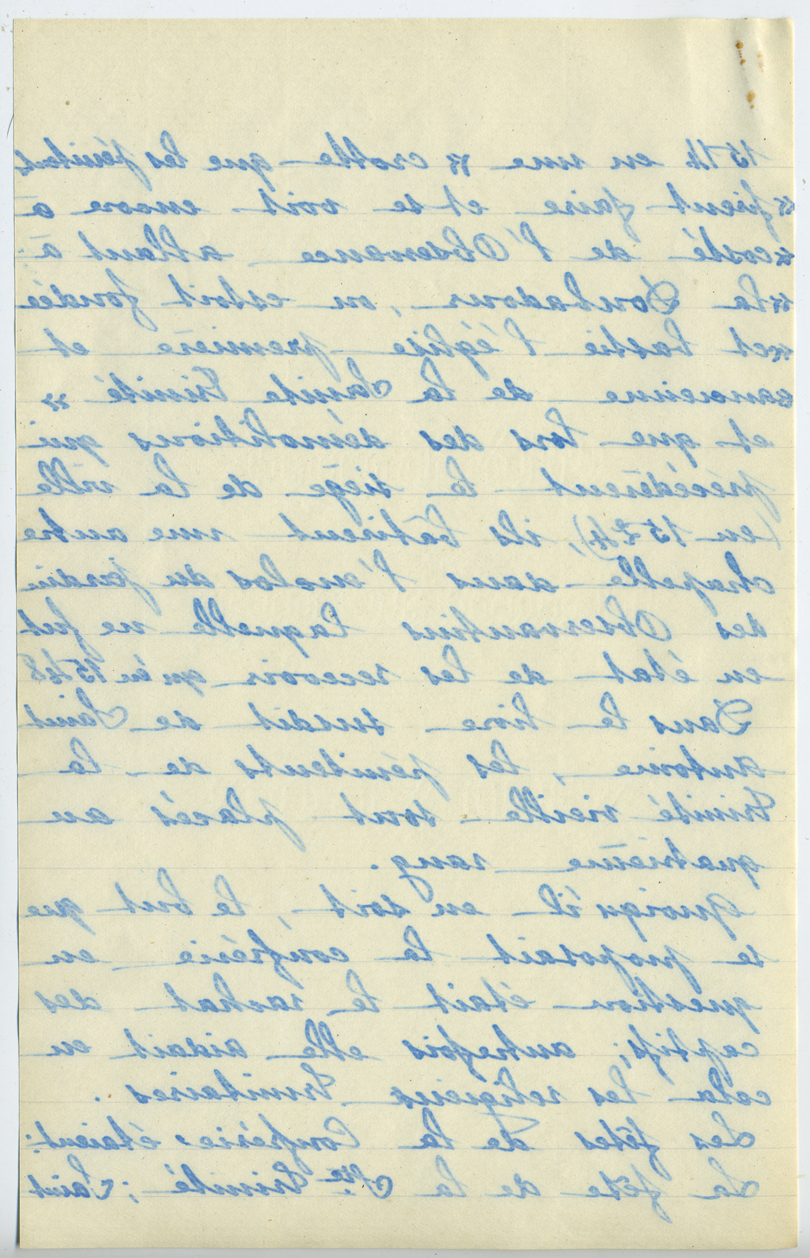 1514 en une « crotte que les pénitents
« firent faire et se voit encore à
« costé de l'Observance allant à
« la Tourbadour, ou estoit fondée
« et bastie l'église première et
« ancienne de la Sainte Trinité »
et que lors des démolitions qui
précédèrent le siège de la ville
(en 1524), ils bâtirent une autre
chapelle dans l'enclos du jardin
des Observantins laquelle ne fut
en état de les recevoir qu'en 1548
Dans le livre susdit de Saint
antoine, les pénitents de la
Trinité vieille sont placés au
quatrième rang.
Quoiqu'il en soit, le but que
se proposait la confrérie en
question était le rachat des
captifs; autrefois elle aidait en
cela les religieux Trinitaires.
Les fêtes de la Confrérie étaient:
La fête de la Ste Trinité; Saint